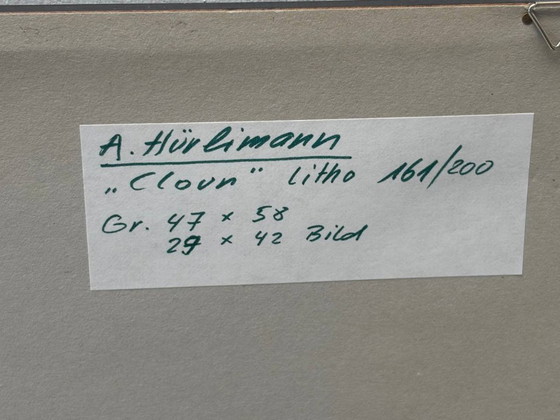 A. Hürlimann
„Cloun" Litho 161/200
Gr. 47 x 58
29 x 42 Bild